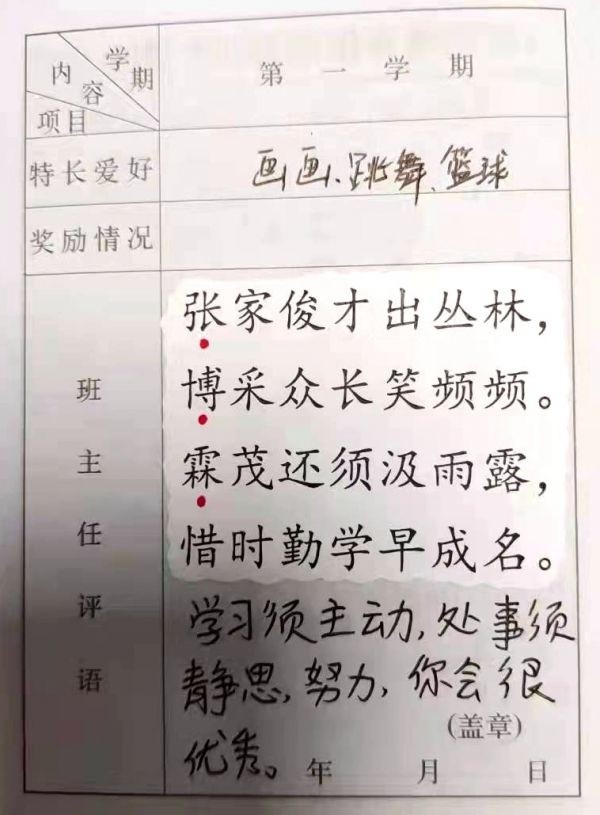 学期
内容
项目
第一学期
特长爱好
画画、跳舞、篮球
奖励情况
班主任评语
张家俊才出丛林，
博采众长笑频频。
霖茂还须汲雨露，
惜时勤学早成名。
学习须主动，处事须
静思，努力，你会很
优秀。
(盖章)
年 月 日